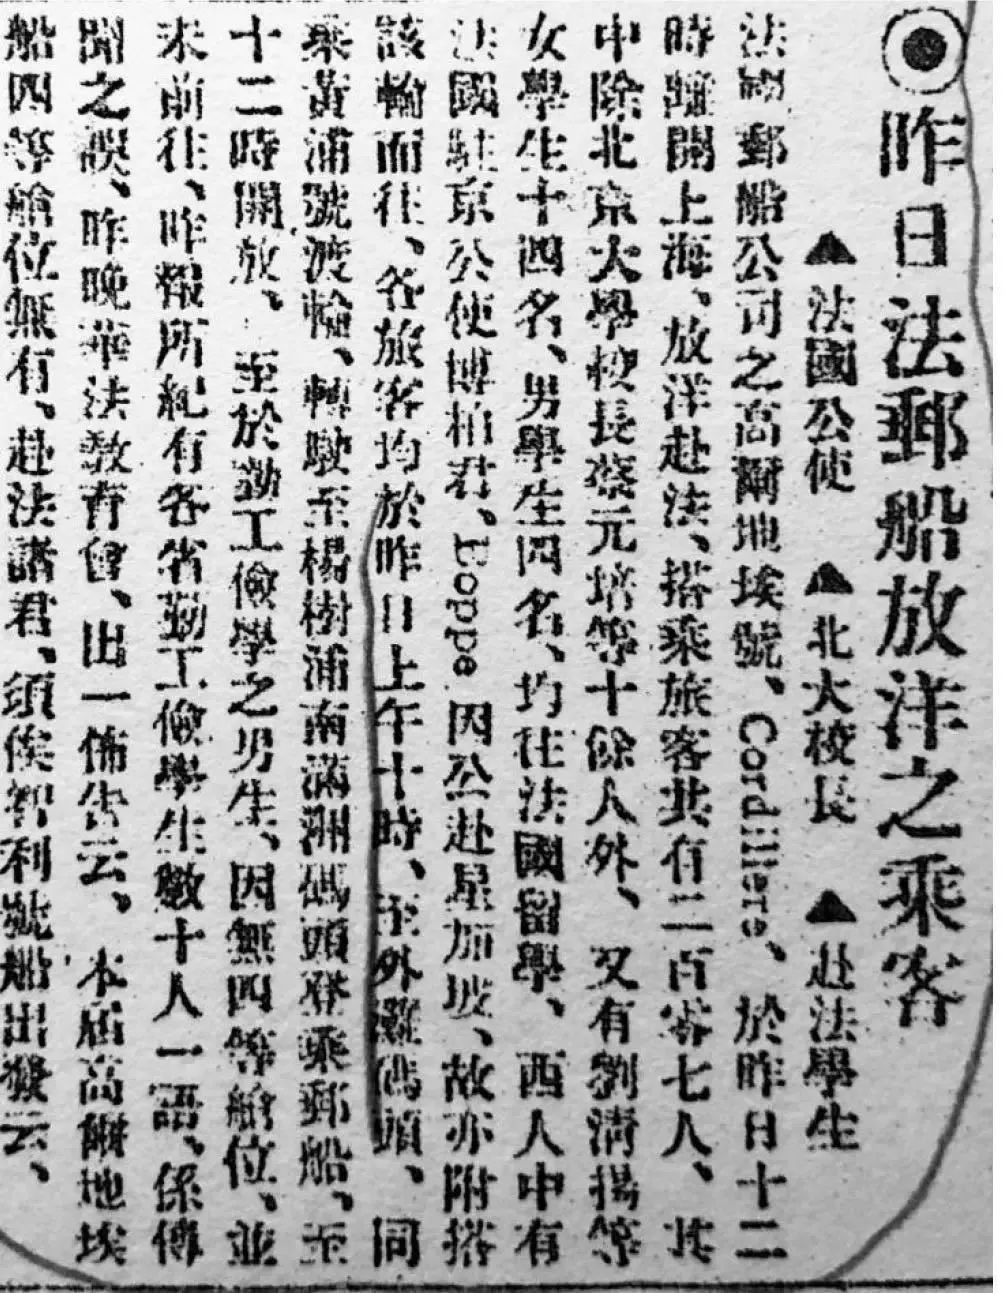 ◉昨日法郵船放洋之乘客
▲法國公使 ▲北大校長 ▲赴法學生
法國郵船公司之高爾地埃號、Cordillere、於昨日十二
時離開上海、放洋赴法、搭乘旅客共有二百零七人、其
中除北京大學校長蔡元培等十餘人外、又有劉清揚等
女學生十四名、男學生四名、均往法國留學、西人中有
法國駐京公使博柏君、Boppe因公赴星加坡、故亦附搭
該輪而往、各旅客均於昨日上午十時、至外灘碼頭、同
乘黃浦號渡輪、轉駛至楊樹浦南滿洲碼頭登乘郵船、至
十二時開放、至於勤工儉學之男生、因無四等艙位、並
未前往、昨報所紀有各省勤工儉學生數十人一語、係傳
聞之誤、昨晚華法教育會、出一佈告云、本屆高爾地埃
船四等艙位無有、赴法諸君、須俟智利號船出發云、